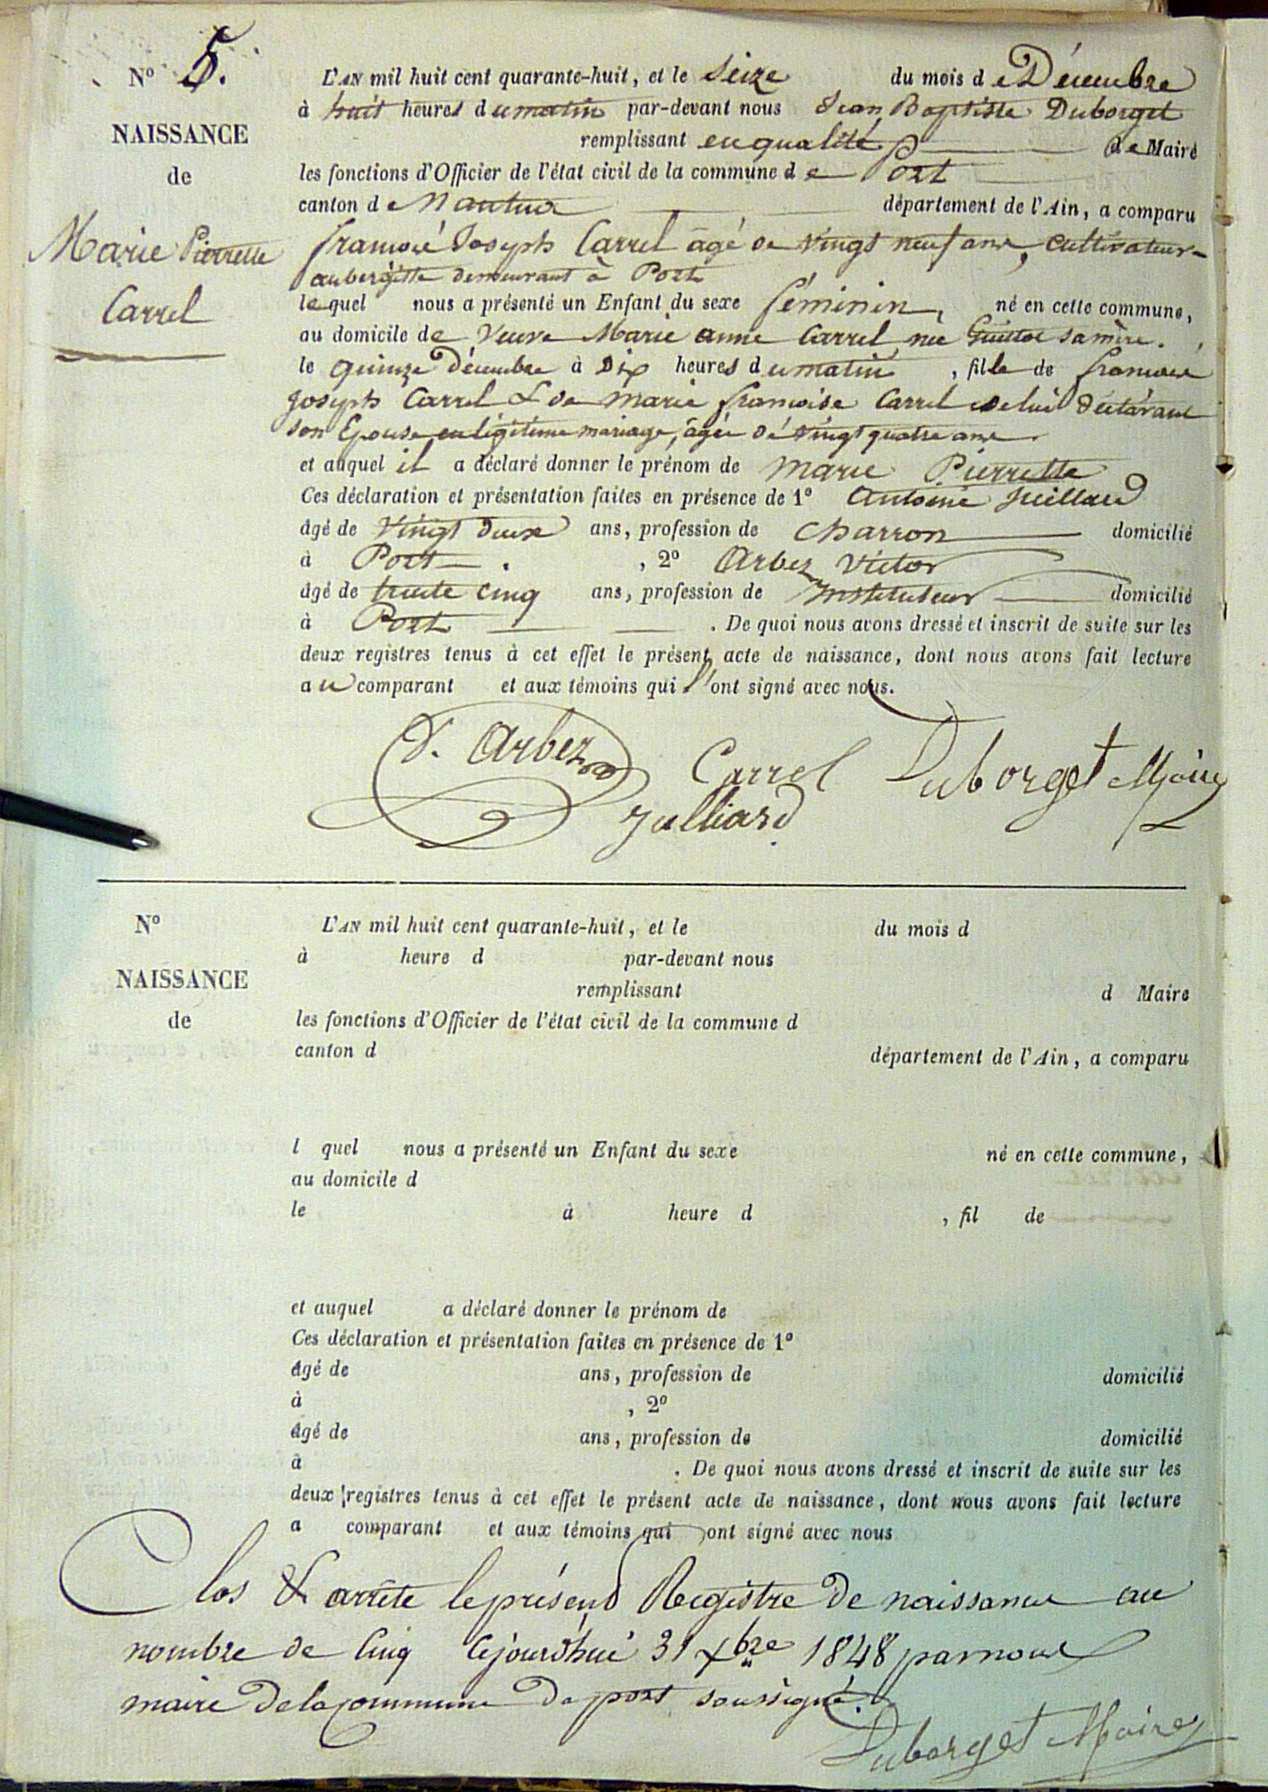 N° 5.
NAISSANCE
de
Marie Pierrette
Carrel
L'AN mil huit cent quarante-huit, et le Seize du mois de Décembre
à huit heures du matin par-devant nous Jean Baptiste Duborget
remplissant en qualité de Maire
les fonctions d'Officier de l'état civil de la commune de Port
canton de Nantua département de l'Ain, a comparu
françois Joseph Carrel âgé de vingt neuf ans, cultivateur-
aubergiste demeurant à Port
lequel nous a présenté un Enfant du sexe féminin, né en cette commune,
au domicile de Veuve Marie anne Carrel née sa mère.
le quinze Décembre à Dix heures du matin, fille de françois
Joseph Carrel & de marie françoise Carrel de lui déclarant
son Epouse en légitime mariage, âgée de vingt quatre ans.
et auquel il a déclaré donner le prénom de marie Pierrette
Ces déclaration et présentation faites en présence de 1° Antoine Juillard
âgé de vingt deux ans, profession de charron domicilié
à Port. , 2° Arbez Victor
âgé de trente cinq ans, profession de Instituteur domicilié
à Port . De quoi nous avons dressé et inscrit de suite sur les
deux registres tenus à cet effet le présent acte de naissance, dont nous avons fait lecture
au comparant et aux témoins qui l'ont signé avec nous.
V. Arbez Carrel Duborget Maire
Julliard
N° L'AN mil huit cent quarante-huit, et le du mois d
à heure d par-devant nous
NAISSANCE
remplissant d Maire
de
les fonctions d'Officier de l'état civil de la commune d
canton d département de l'Ain, a comparu
l quel nous a présenté un Enfant du sexe né en cette commune,
au domicile d
le à heure d , fil de
et auquel a déclaré donner le prénom de
Ces déclaration et présentation faites en présence de 1°
âgé de ans, profession de domicilié
à , 2°
âgé de ans, profession de domicilié
à . De quoi nous avons dressé et inscrit de suite sur les
deux registres tenus à cet effet le présent acte de naissance, dont nous avons fait lecture
a comparant et aux témoins qui ont signé avec nous
Clos & arrêté le présent Registre de naissance au
nombre de Cinq cejourd'hui 31 Xbre 1848 par nous
maire de la commune de port soussigné.
Duborget Maire